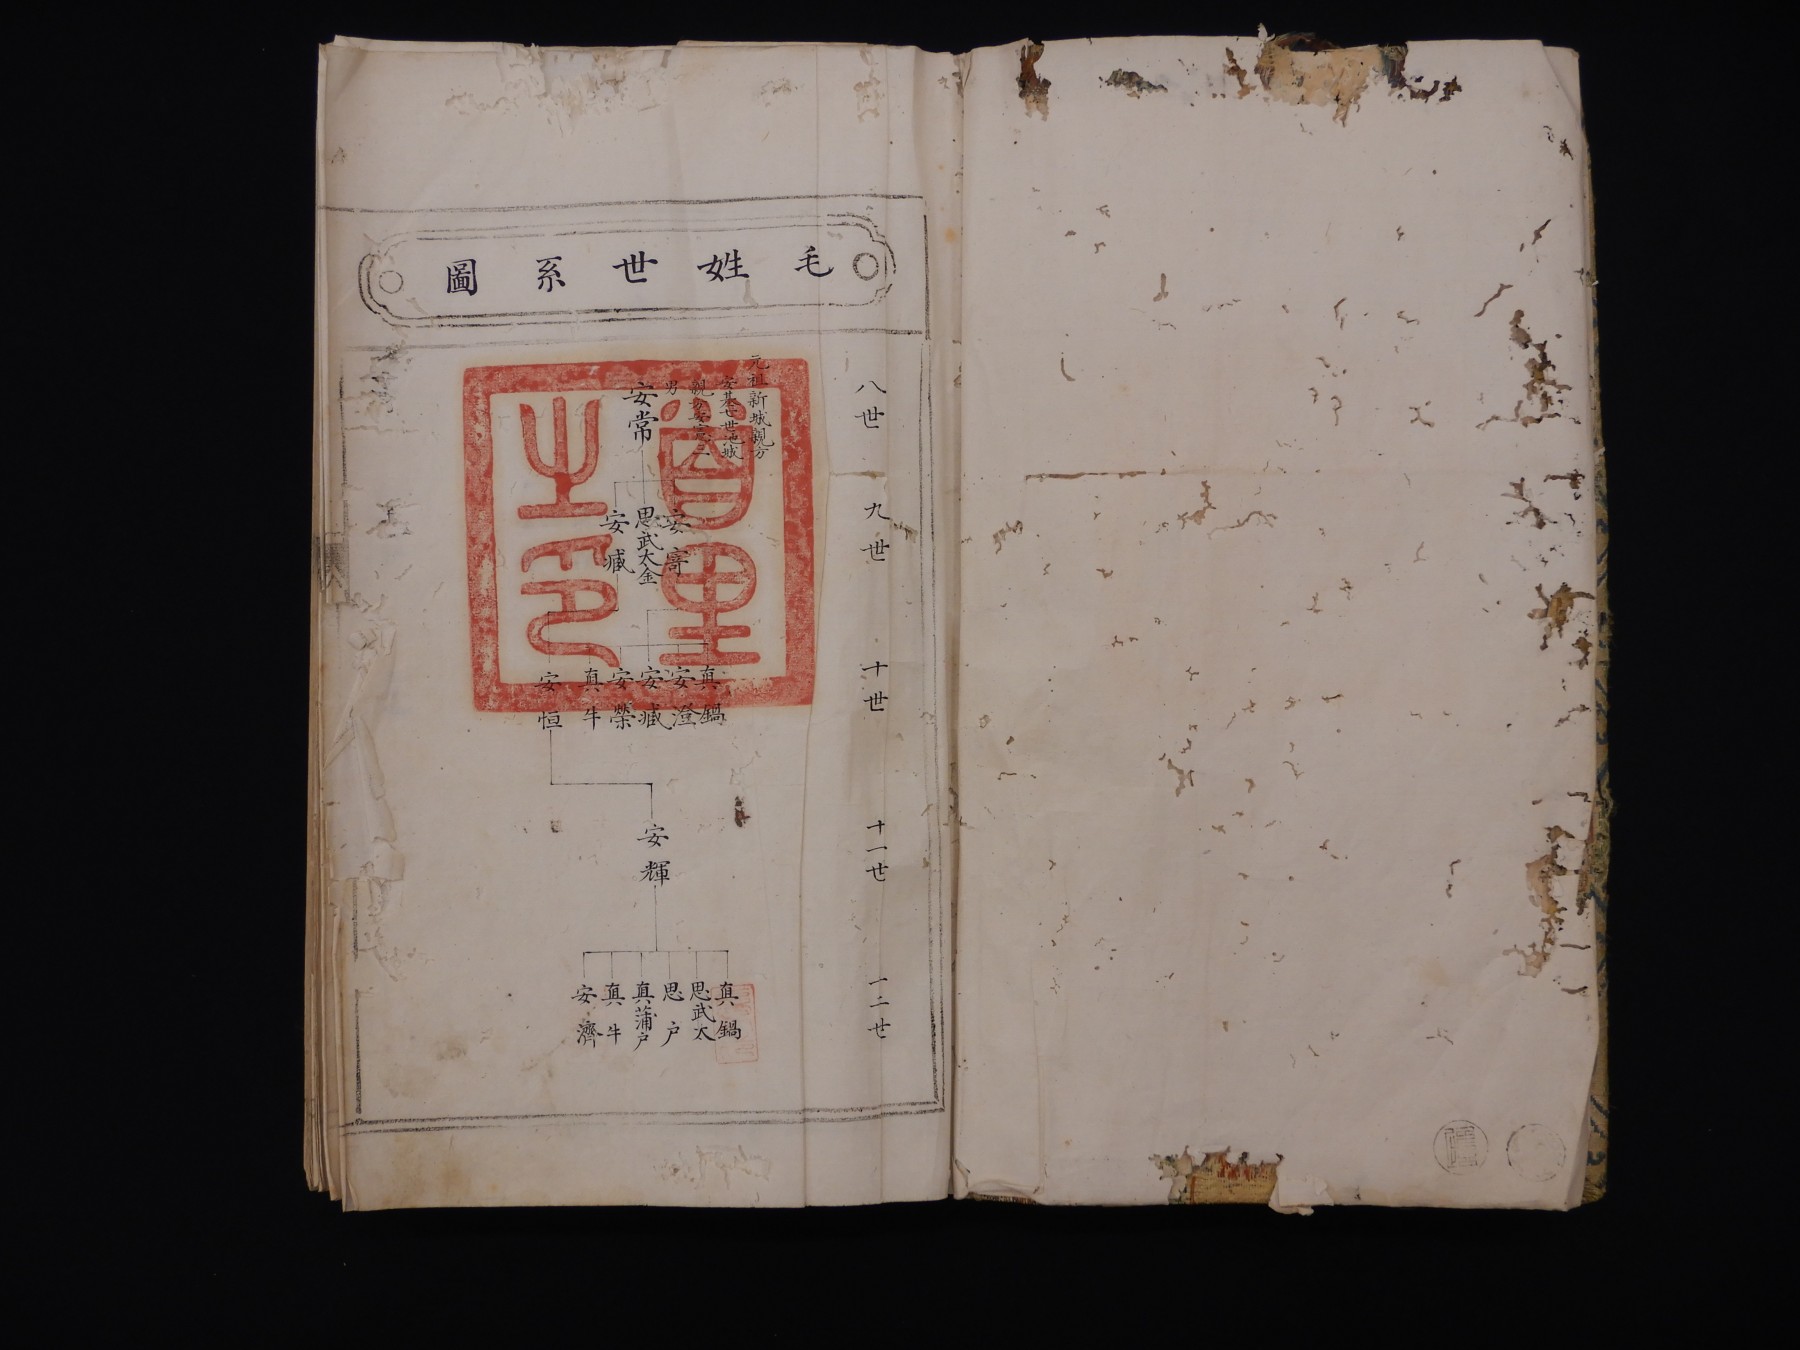 毛姓世系圖
八世
元祖新城親方
安基七世池城
親方安憲二
男
安常
九世
安寄
思武太金
安臧
十世
真鍋
安澄
安臧
安榮
真牛
安恒
十一世
安輝
一二世
真鍋
思武太
思戸
真蒲戸
真牛
安濟
首里之印